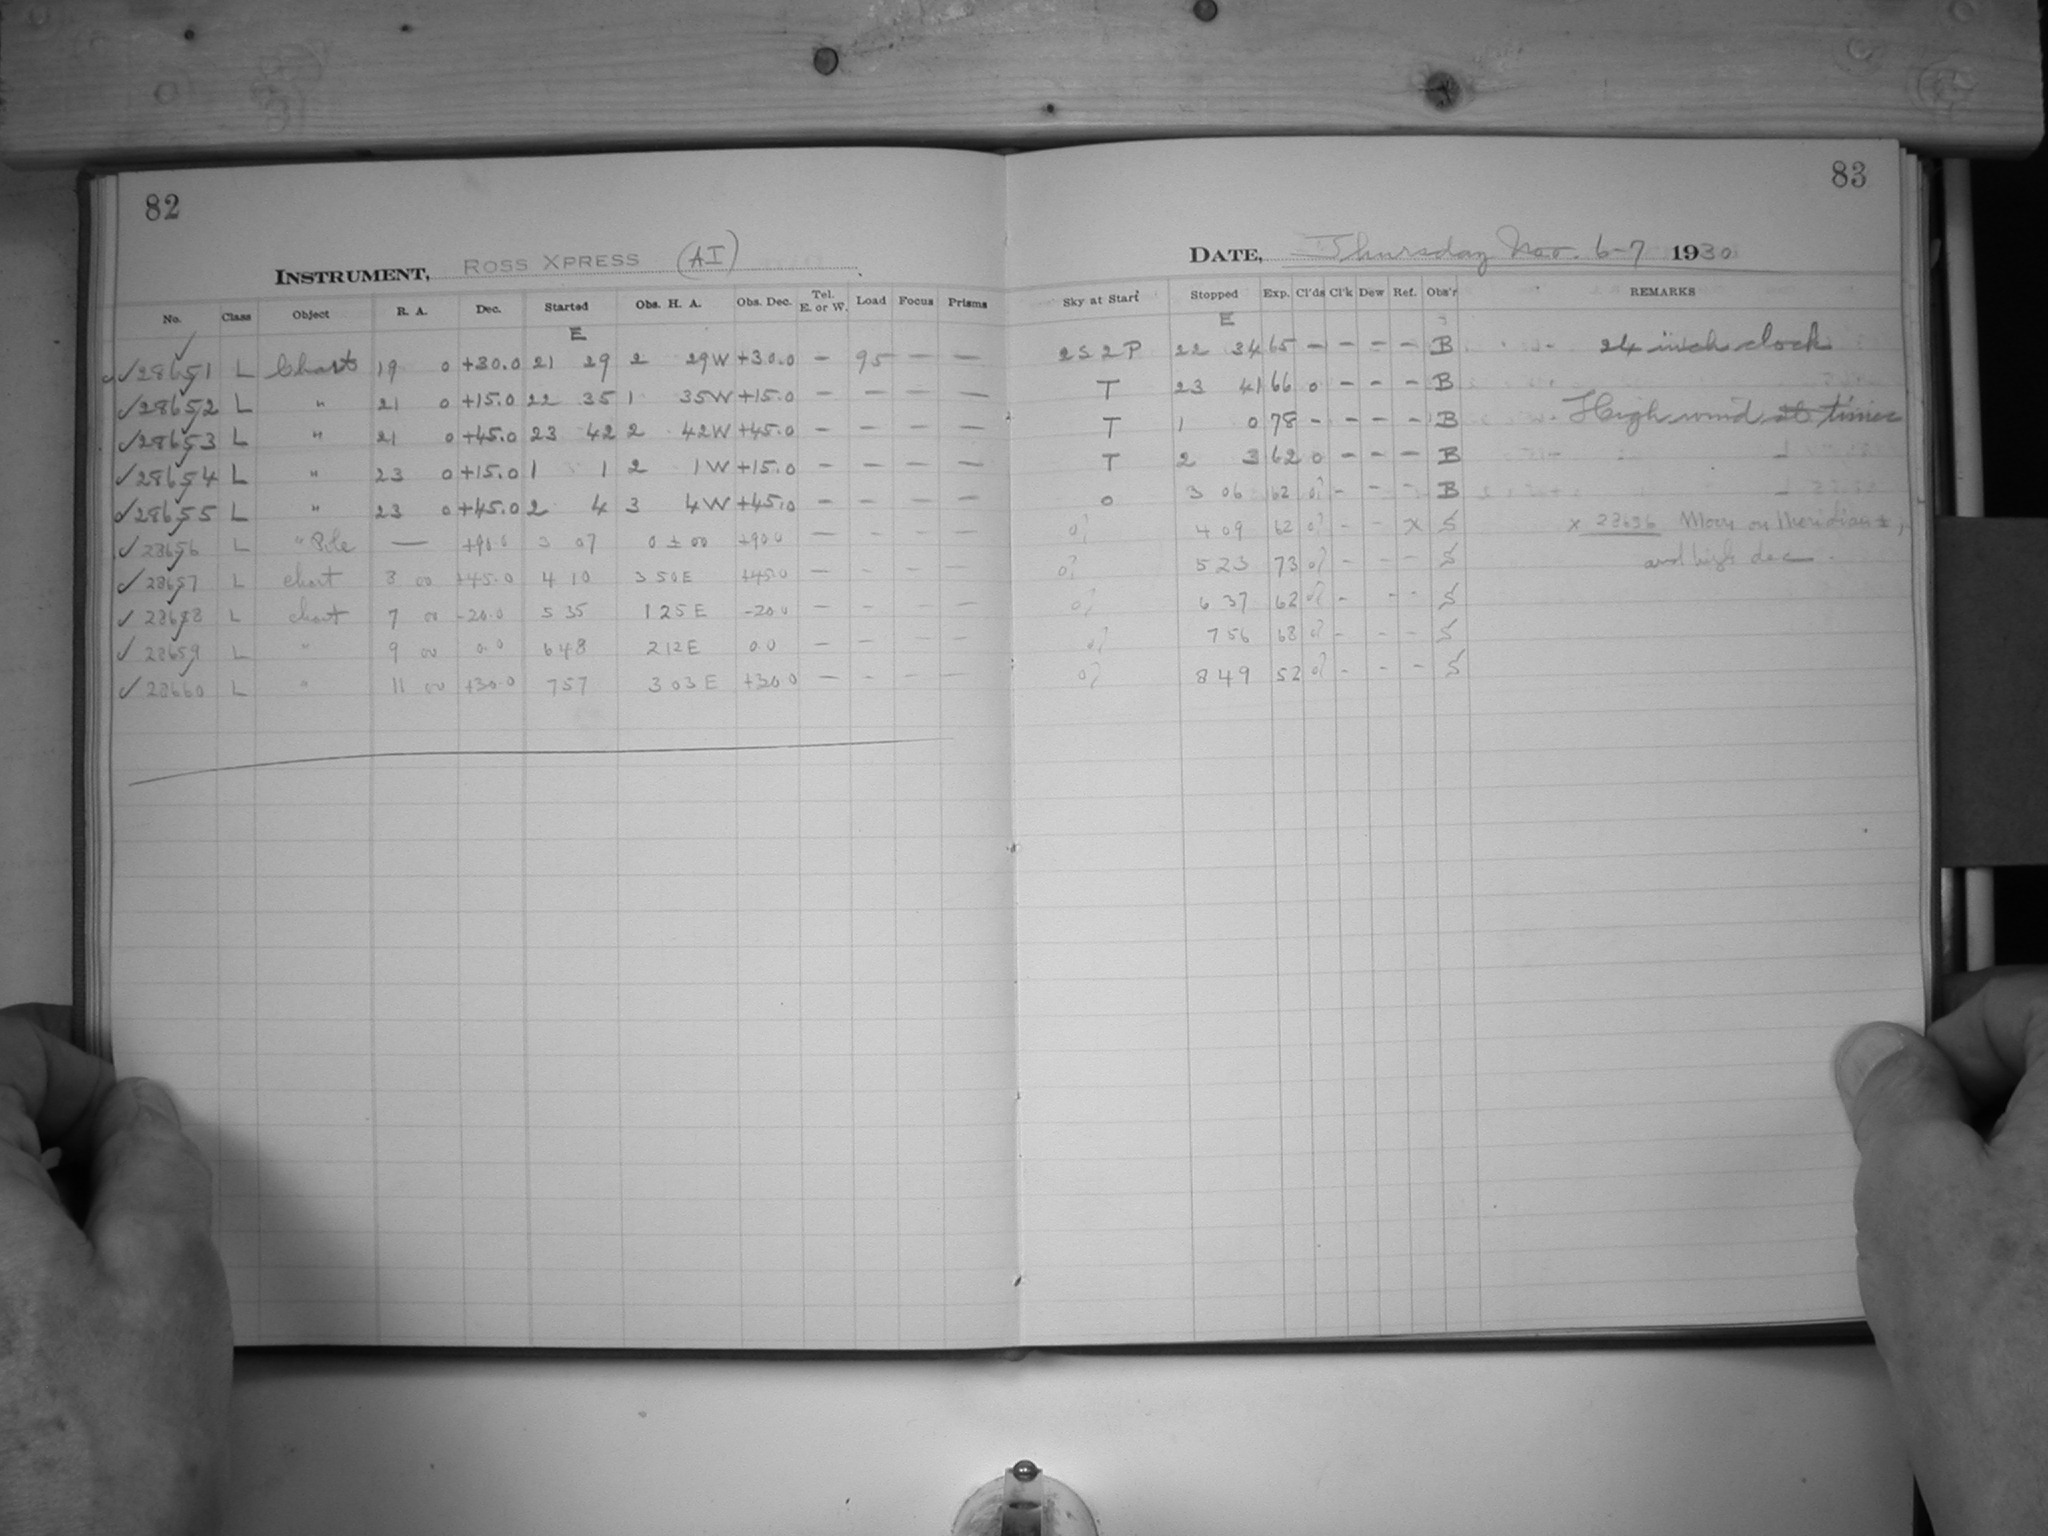 82
INSTRUMENT, ROSS XPRESS (AI)
No. Class Object R. A. Dec. Started Obs. H. A. Obs. Dec. Tel. E. or W. Load Focus Prisms
E
✓28651 L Chart 19 0 +30.0 21 29 2 29W +30.0 — 95 — —
✓28652 L " 21 0 +15.0 22 35 1 35W +15.0 — — — —
✓28653 L " 21 0 +45.0 23 42 2 42W +45.0 — — — —
✓28654 L " 23 0 +15.0 1 1 2 1W +15.0 — — — —
✓28655 L " 23 0 +45.0 2 4 3 4W +45.0 — — — —
✓28656 L " Pole — +90.0 3 07 0 ± 00 +90.0 — — — —
✓28657 L chart 8 00 +45.0 4 10 3 50E +45.0 — — — —
✓28658 L chart 7 00 -20.0 5 35 1 25E -20.0 — — — —
✓28659 L " 9 00 0.0 6 48 2 12E 0.0 — — — —
✓28660 L " 11 00 +30.0 7 57 3 03E +30.0 — — — —
83
DATE, Thursday Nov. 6-7 1930
Sky at Start Stopped Exp. Cl'ds Cl'k Dew Ref. Obs'r REMARKS
E
2S 2P 22 34 65 — — — — B 24 inch clock
T 23 41 66 0 — — — B
T 1 0 78 — — — — B High wind at times
T 2 3 62 0 — — — B
0 3 06 62 0? — — — B
0? 4 09 62 0? — — x S x 28656 Moon on Meridian ±,
0? 5 23 73 0? — — — S and high dec.
0? 6 37 62 0? — — — S
0? 7 56 68 0? — — — S
0? 8 49 52 0? — — — S